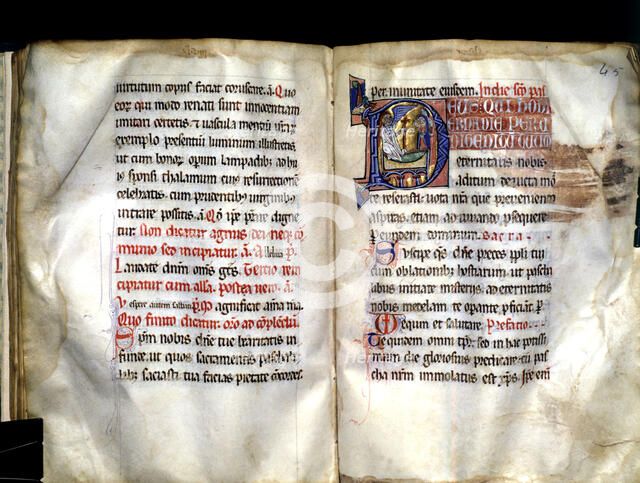 uirtutum copiis faciat coruscare. a. Quo
cor qui modo renati sunt innocentiam
imitari certetis. et uascula mentium urarum
exemplo presentium luminum illustretis
ut cum bonorum opum lampadibus ad hu
ius sponsi thalamum cuius resurrectionem
celebratis. cum prudentibus uirginibus
intrare possitis. a. Qd ipse prare digne
tur. Non dicatur agnus dei neque co
munio sed incipiatur. a. Alleluia. ps.
Laudate dnm oms gtes. Tercio rein
cipiatur cum alla. postea uero. a.
Vespere autem sabbati. ps. Magnificat anima mea.
Quo finito dicatur. oro ad complendum
Spm nobis dne tue karitatis in
funde. ut quos sacramentis paschali
bus saciasti tua facias pietate concordes.
45
per munitate eiusdem. In die sco pas
DEUS QUI HODI
ERNA DIE PER U
NIGENITUM TUUM
eternitatis nobis
aditum deuicta mor
te reserasti. uota nra que preueniendo
aspiras. etiam adiuuando prosequere.
Per eundem dominum. Sacra.
Suscipe qs dne preces ppli tui
cum oblationibus hostiarum. ut paschalibus initiate misteriis. ad eternitatis
nobis medelam te opante pficiant. p.
Equum et salutare. Prefatio.
Te quidem omni tpr. sed in hac potissi
mum die gloriosius predicare cum pas
cha nrm immolatus est xps. Ipse enim